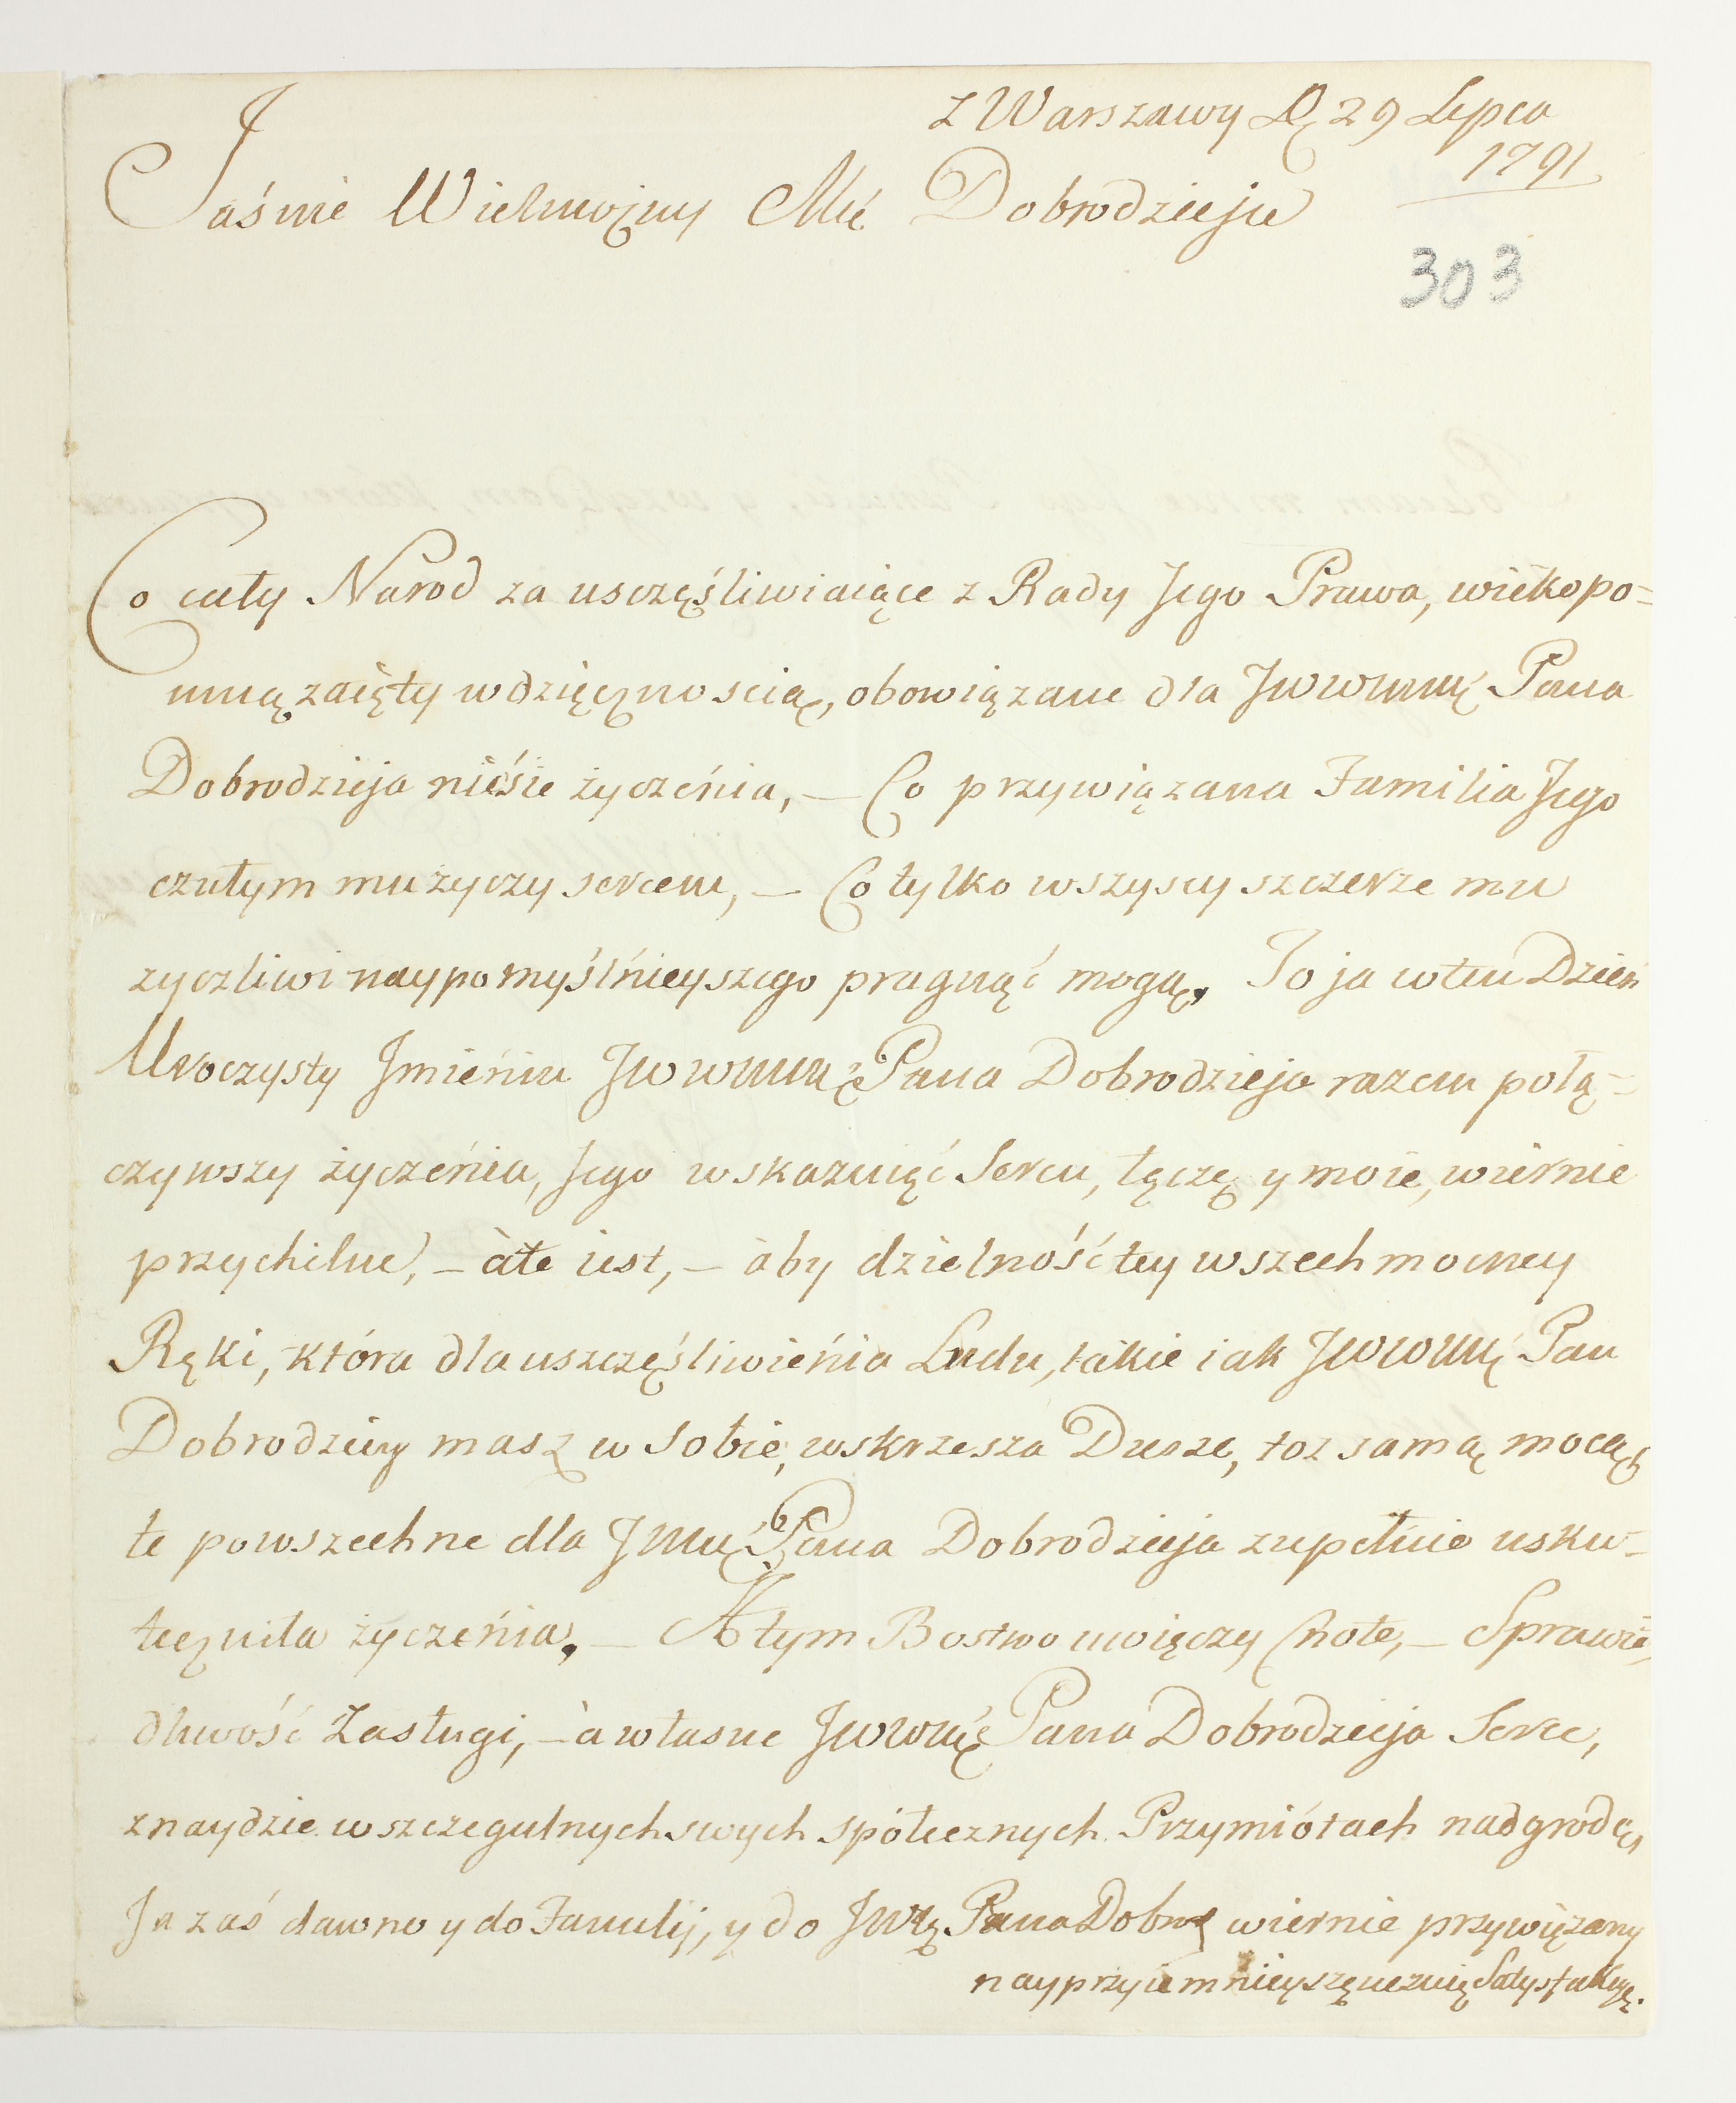 z Warszawy D. 29 Lipca
1791
Jaśnie Wielmożny Mći Dobrodzieju
303
Co cały Narod za uszczęśliwiaiące z Rady Jego Prawa, wiekopo=
mną zaięty wdzięcznoscią, obowiązane dla JWWMMći Pana
Dobrodzieja nieśie życzeńia, – Co przywiązana Familia Jego
czułym mu życzy sercem, – Co tylko wszyscy szczerze mu
zyczliwi naypomyślńieyszego pragnąć mogą, To ja w ten Dzień
Uroczysty Jmieńin Pana Dobrodzieja razem połą=
czywszy życzeńia, Jego wskazuięć Sercu, łączę y moie, wiernie
przychilne, – àłe iest, – àby dzielność tey wszechmocney
Ręki, która dla uszczęśliwieńia Ludu, takie iak JWWMći Pan
Dobrodziey masz w sobie, wskrzesza Dusze, toz samą mocą,
te powszechne dla JMći Pana Dobrodzieja zupełnie usku=
teczniła życzeńia, – A tym Bostwo uwięczy Cnote, – Sprawie,
dliwość Zasługi, – à własne JWWMći Pana Dobrodzieja Serce,
znaydzie w szczegulnych swych spółecznych Przymiótach nadgrodę,
Ja zaś dawno y do Familij, y do Pana Dobr wiernie przywięzany
nayprzyiemnieyszę uczuię Satysfakcyę.